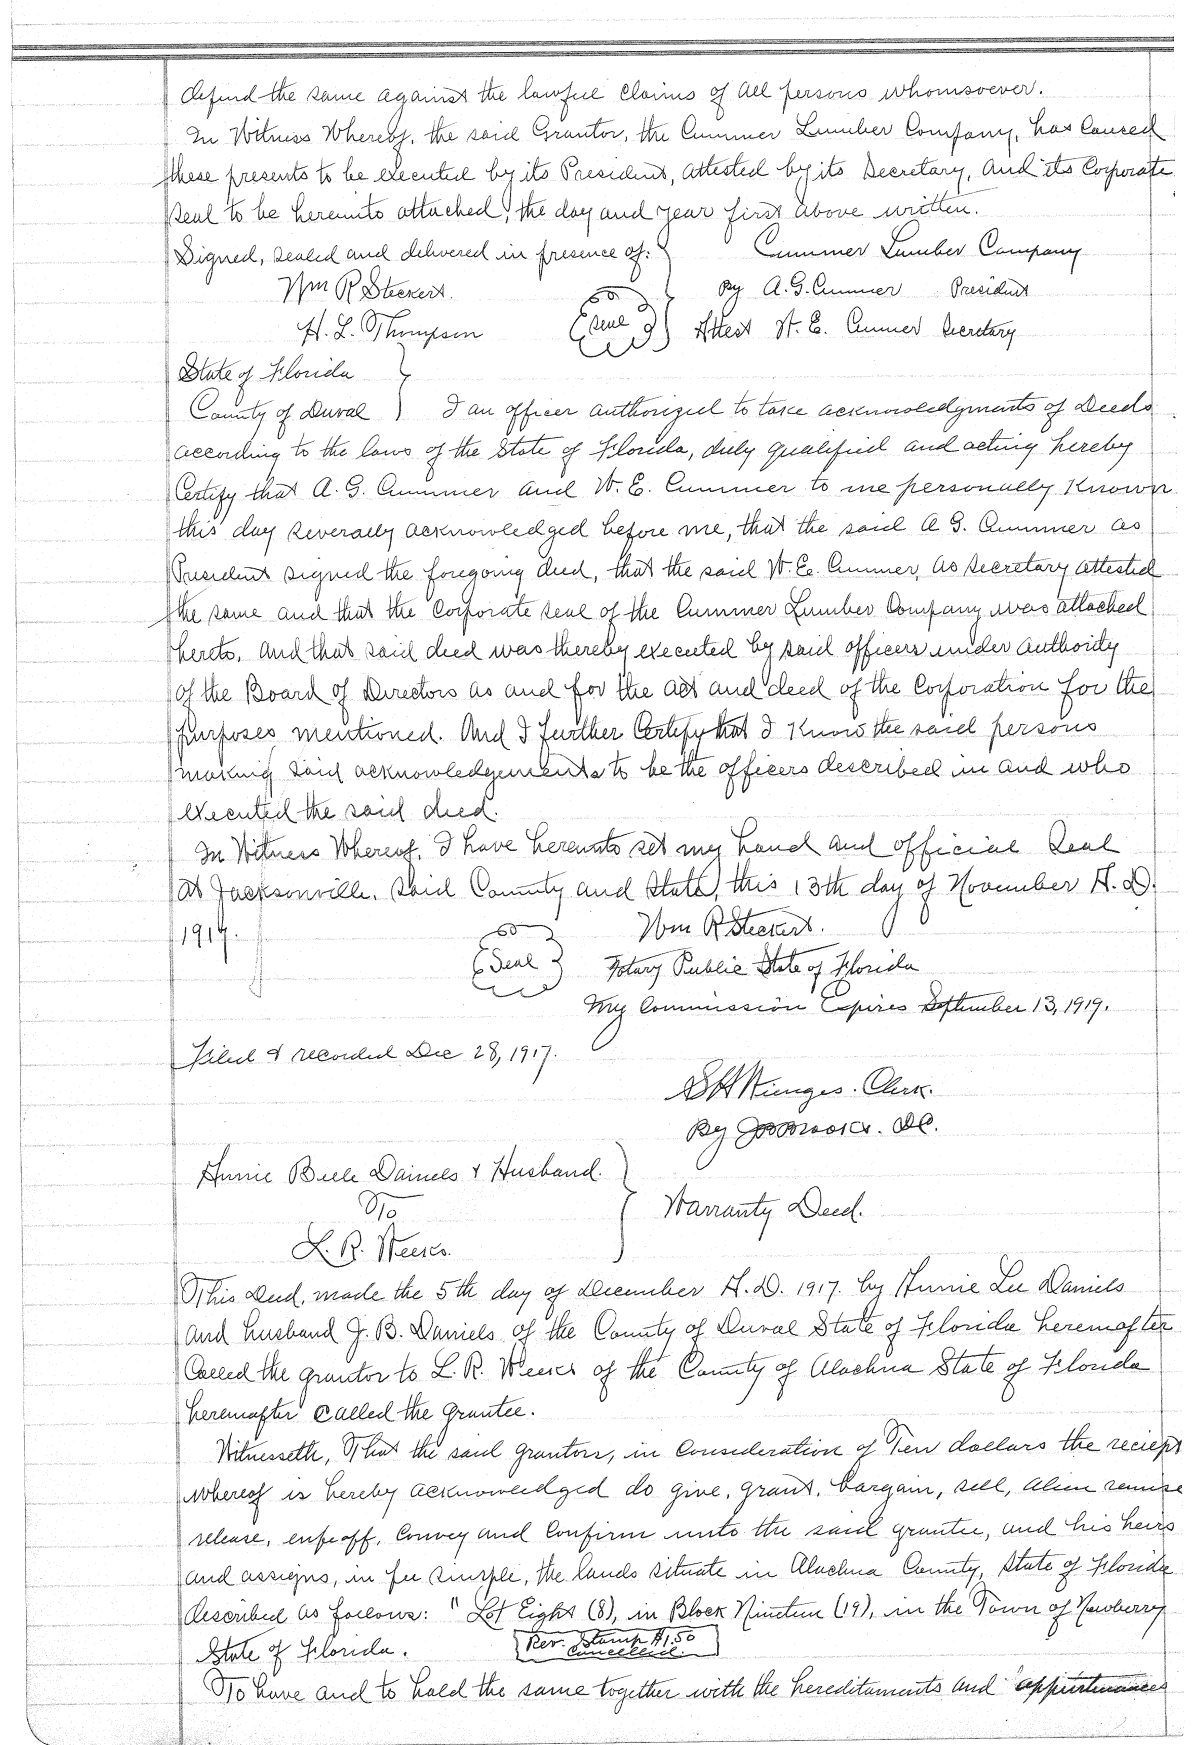 defend the same against the lawful claims of all persons whomsoever.
In Witness Whereof, the said Grantor, the Cummer Lumber Company, has caused
these presents to be executed by its President, attested by its Secretary, and its Corporate
Seal to be hereunto attached, the day and year first above written.
Signed, sealed and delivered in presence of: Cummer Lumber Company
Wm R Steckert. By A. G. Cummer President
H. L. Thompson Seal Attest W. E. Cummer Secretary
State of Florida
County of Duval I an officer authorized to take acknowledgments of Deeds
according to the laws of the State of Florida, duly qualified and acting hereby
Certify that A. G. Cummer and W. E. Cummer to me personally known
this day severally acknowledged before me, that the said A G. Cummer as
President signed the foregoing deed, that the said W. E. Cummer, as Secretary attested
the same and that the Corporate seal of the Cummer Lumber Company was attached
hereto, and that said deed was thereby executed by said officers under authority
of the Board of Directors as and for the act and deed of the Corporation for the
purposes mentioned. And I further Certify that I know the said persons
making said acknowledgements to be the officers described in and who
executed the said deed.
In Witness Whereof, I have hereunto set my hand and official Seal
at Jacksonville, said County and State, this 13th day of November A. D.
1917. Wm R Steckert.
Seal Notary Public State of Florida
My Commission Expires September 13, 1919.
Filed & recorded Dec 28, 1917.
S H Wienges. Clerk.
By D.C.
Annie Belle Daniels & Husband.
To Warranty Deed.
L. R. Weeks.
This Deed, made the 5th day of December A. D. 1917. by Annie Lee Daniels
and husband J. B. Daniels of the County of Duval State of Florida hereinafter
Called the grantor to L. R. Weeks of the County of Alachua State of Florida
hereinafter called the grantee.
Witnesseth, That the said grantors, in consideration of Ten dollars the reciept
whereof is hereby acknowledged do give, grant, bargain, sell, alien remise
release, enfeoff, convey and confirm unto the said grantee, and his heirs
and assigns, in fee simple, the lands situate in Alachua County, State of Florida
described as follows: " Lot Eight (8), in Block Nineteen (19), in the Town of Newberry
State of Florida. Rev. Stamp $1.50
Cancelled.
To have and to hold the same together with the hereditaments and appurtenances